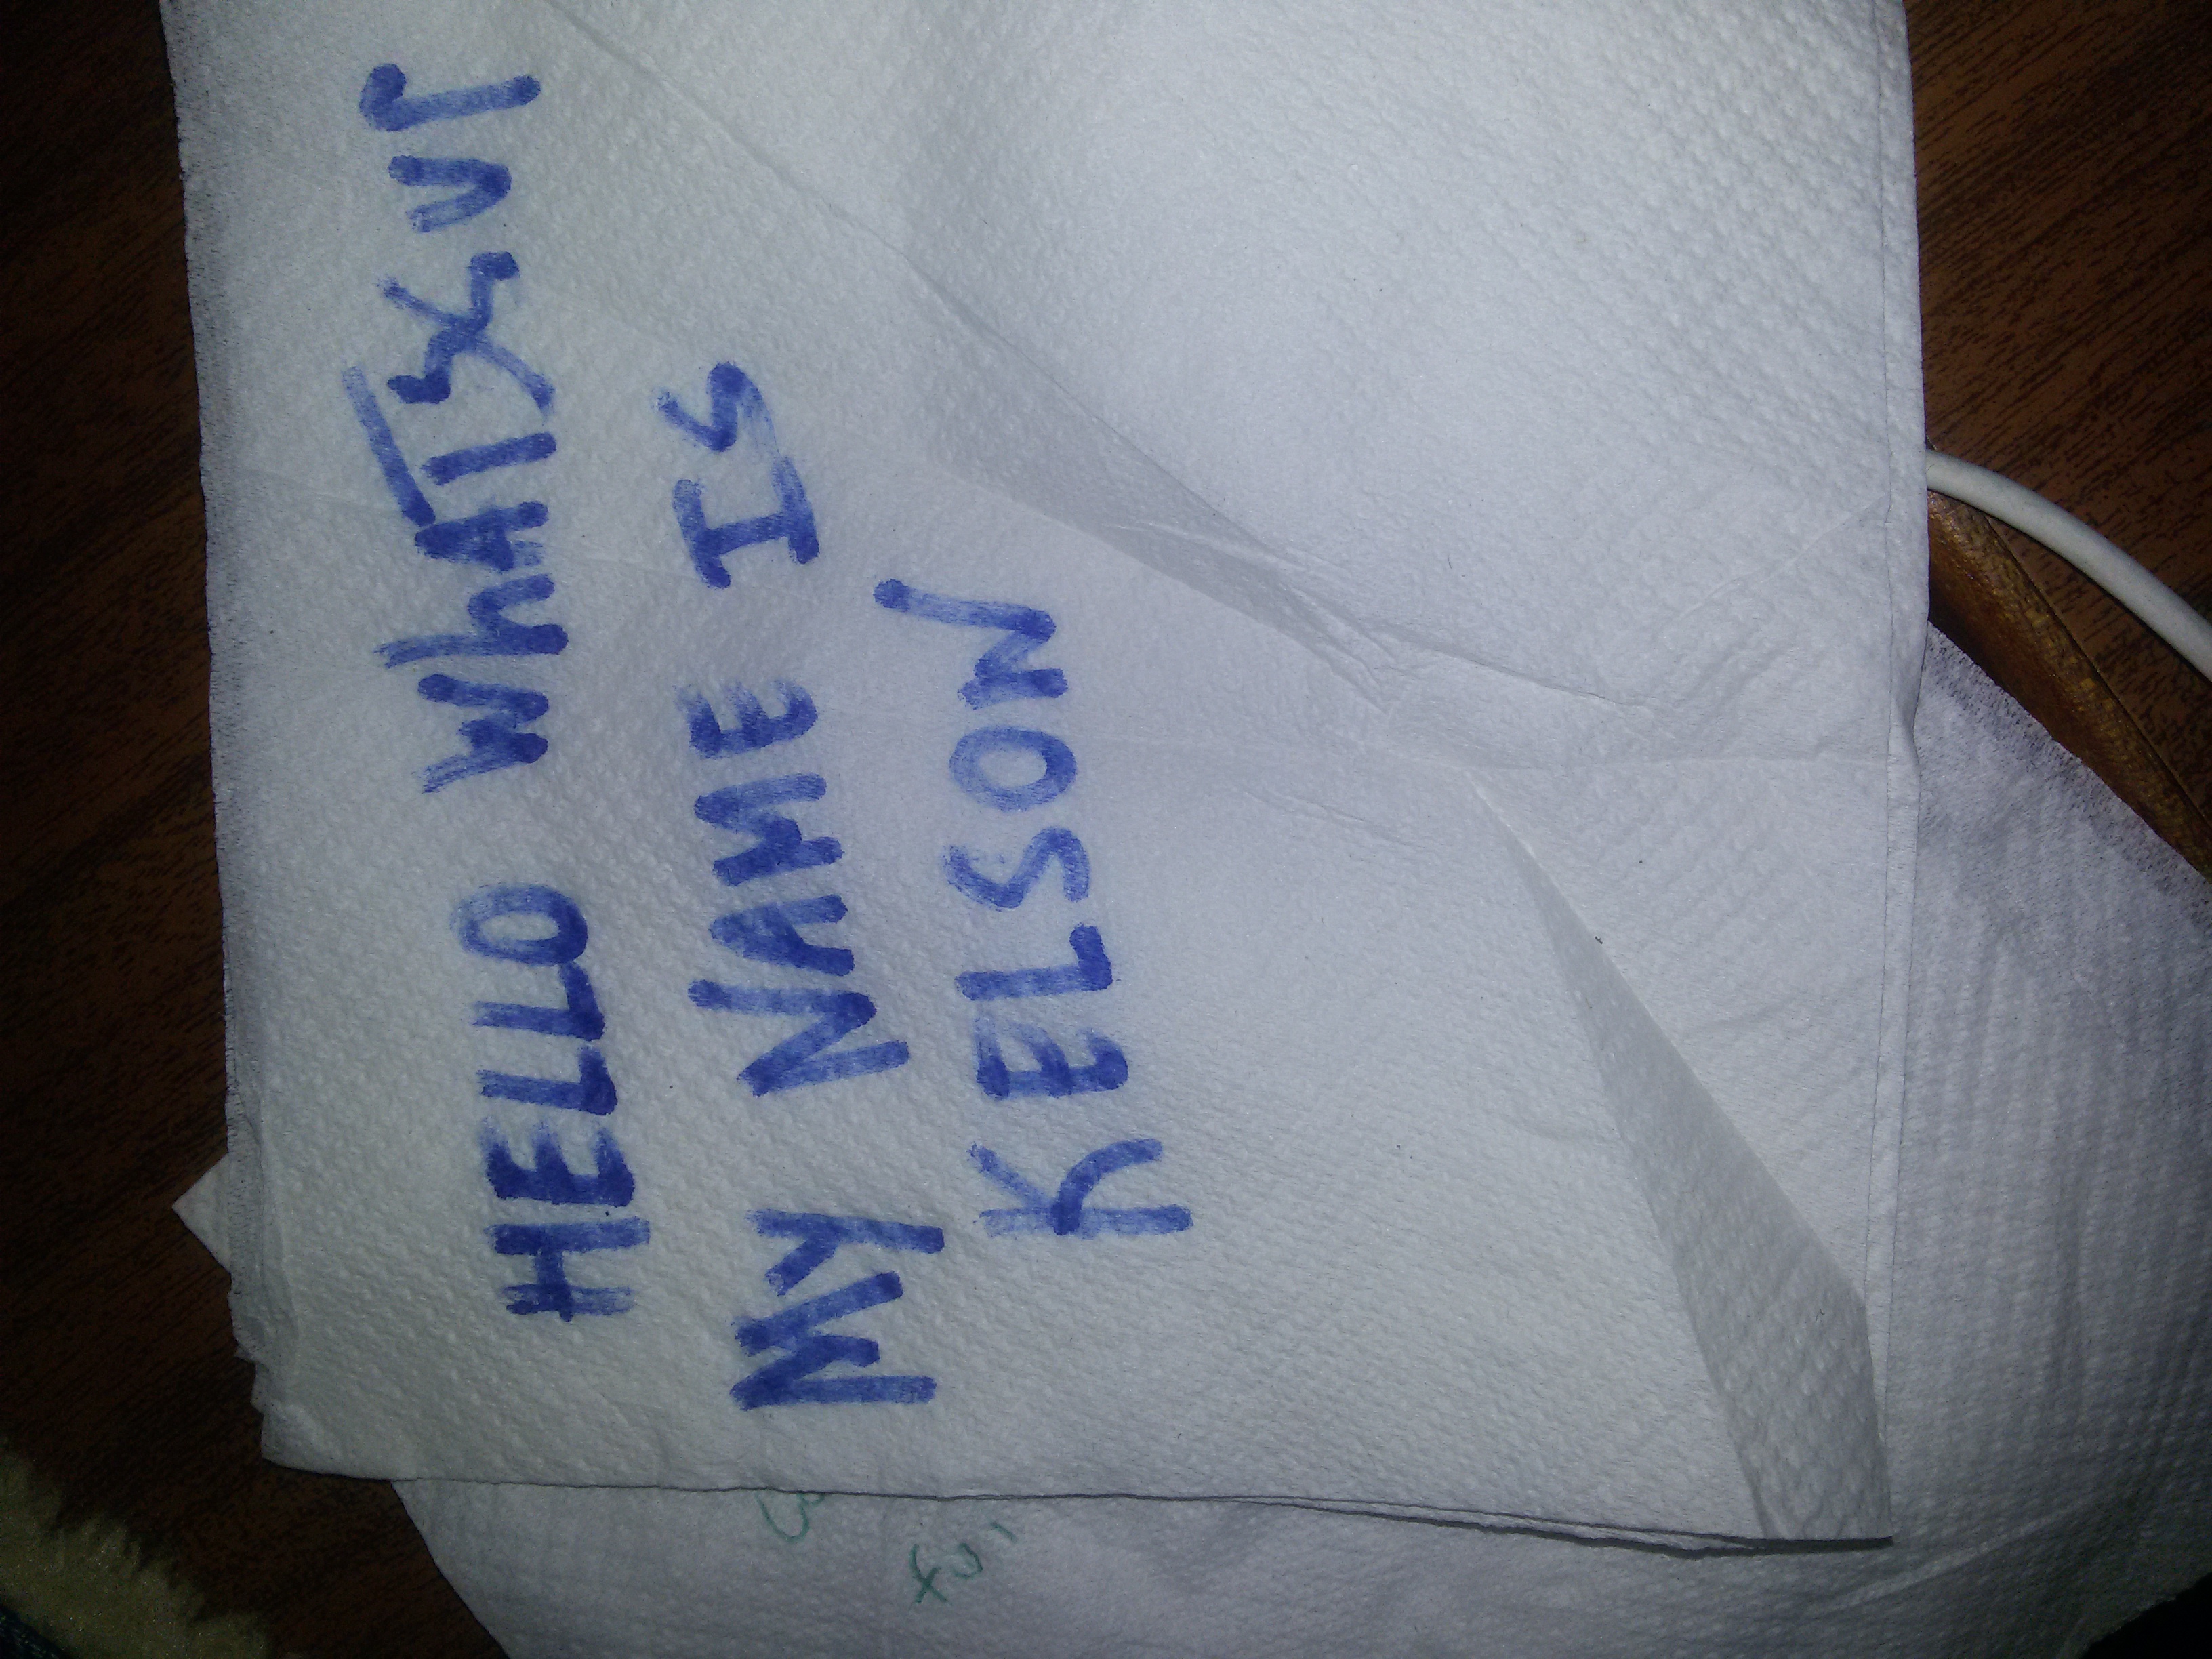 HELLO WhATSS UP
My NAME IS
KELSON